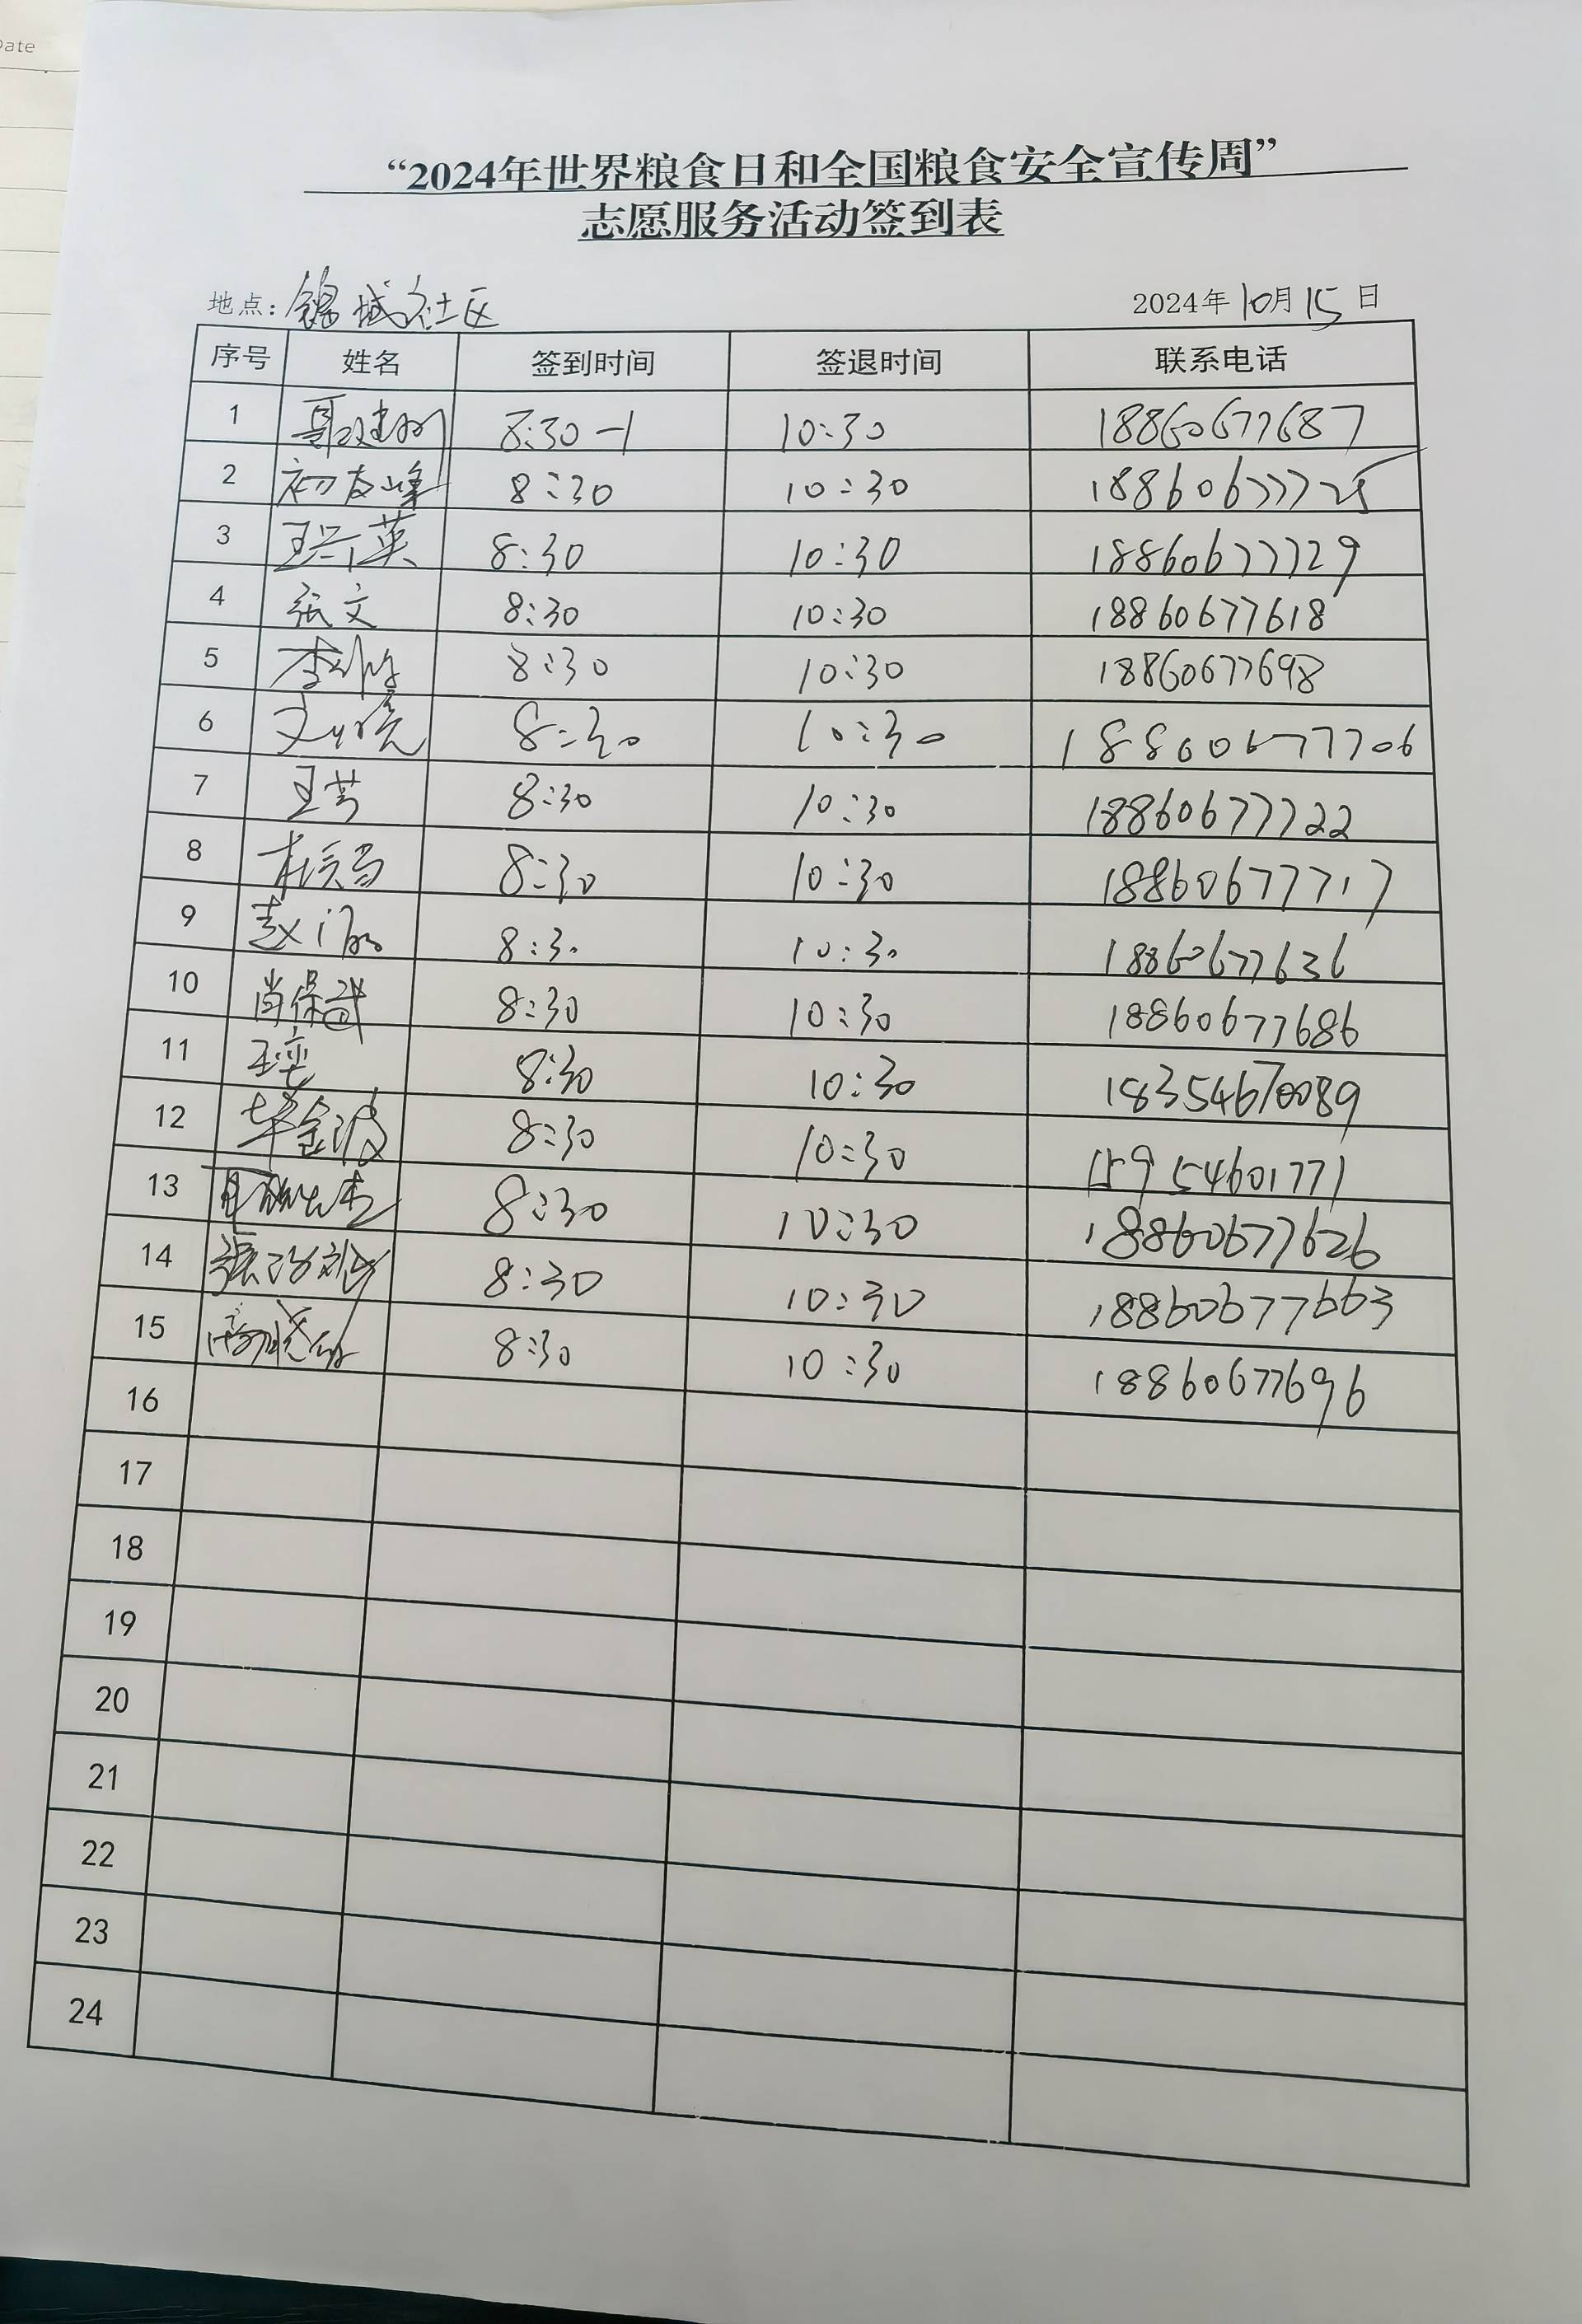 Date
“2024年世界粮食日和全国粮食安全宣传周”
志愿服务活动签到表
地点：锦城社区 2024年10月15日
序号 姓名 签到时间 签退时间 联系电话
1 8:30 10:30 18860677687
2 初友峰 8:30 10:30 18860677725
3 王兴英 8:30 10:30 18860677729
4 张文 8:30 10:30 18860677618
5 8:30 10:30 18860677698
6 8:30 10:30 18860677706
7 王芳 8:30 10:30 18860677722
8 8:30 10:30 18860677717
9 8:30 10:30 18860677636
10 肖保武 8:30 10:30 18860677686
11 8:30 10:30 18354670089
12 毕金波 8:30 10:30 15954601771
13 8:30 10:30 18860677626
14 8:30 10:30 18860677663
15 8:30 10:30 18860677696
16
17
18
19
20
21
22
23
24